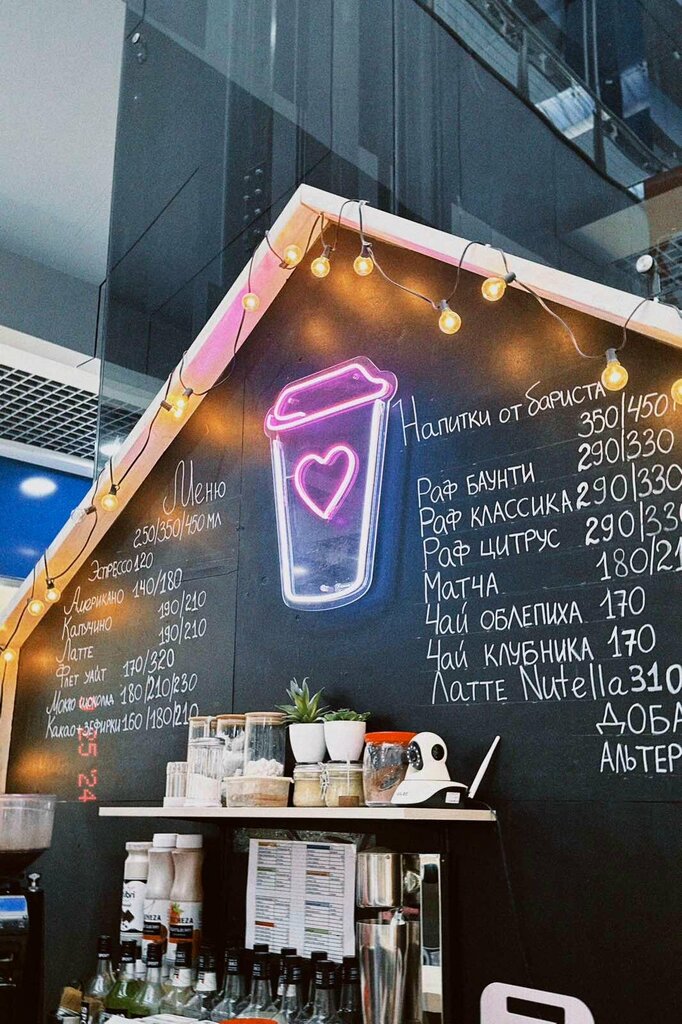 Меню
250/350/450 мл
Эспрессо 120
Американо 140/180
Капучино 190/210
Латте 190/210
Флет уайт 170/320
Мокко шоколад 180/210/230
Какао+зефирки 160/180/210
Напитки от бариста
350/450
Раф баунти 290/330
Раф классика 290/330
Раф цитрус 290/330
Матча 180/21
Чай облепиха 170
Чай клубника 170
Латте Nutella 310
ДОБА
АЛЬТЕР
25 24